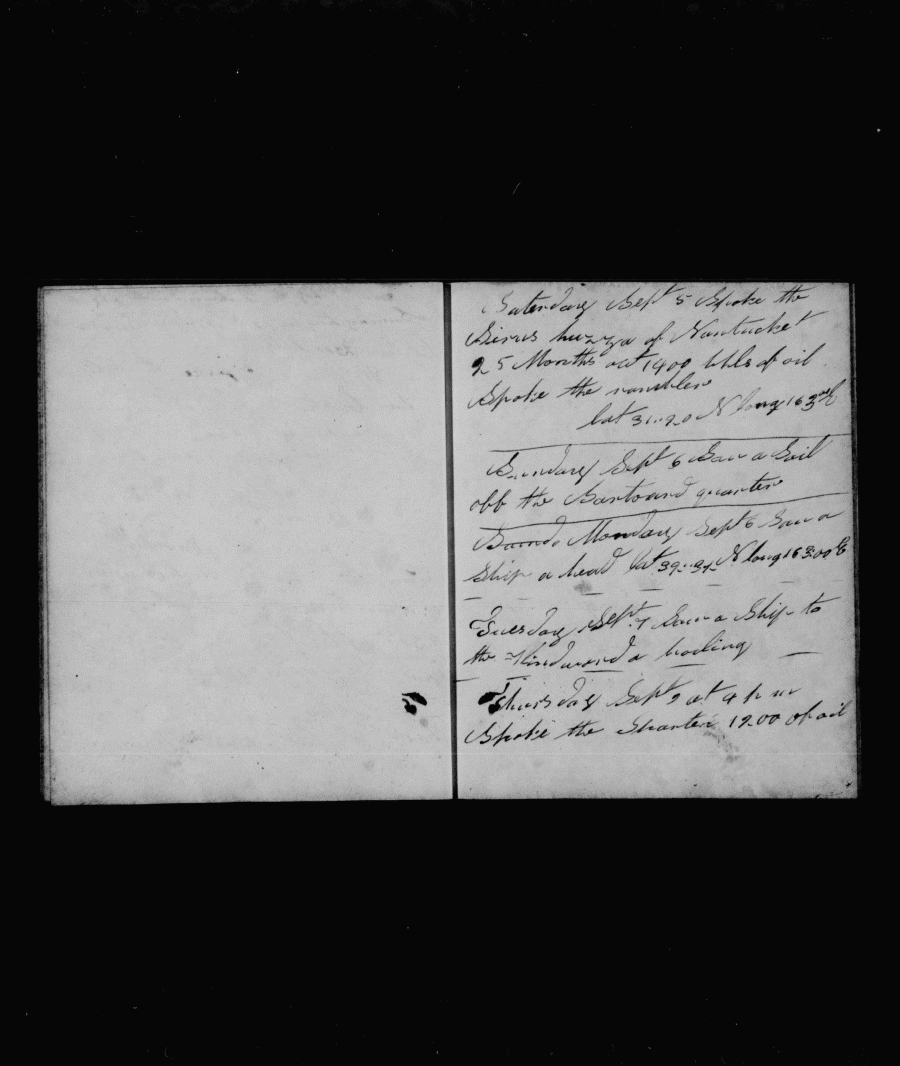 Saterday Sept 5 Spoke the
huzza of Nantucket
25 Months out 1400 bbls of oil
Spoke the rambler
lat 31..20 N long 163 E
Sunday Sept 6 Saw a Sail
obb the quarter
Monday Sept 6 Saw a
Ship a head lat 39..31 N long 163:00 E
Tuesday Sept 7 Saw a Ship to
the Windward a boiling
Thursday Sept 9 at 4 p m
Spoke the 1200 of oil